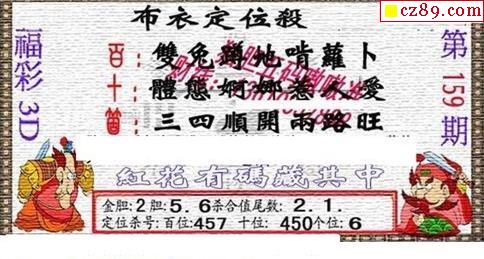 cz89.com
布衣定位殺
福彩3D
第159期
百：雙兔蹲地啃蘿卜
十：體態婀娜惹人愛
個：三四順開兩路旺
紅花有碼藏其中
金胆:2胆:5.6杀合值尾数:2.1.
定位杀号:百位:457 十位:450个位:6